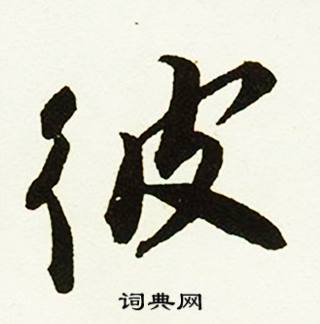 彼
词典网